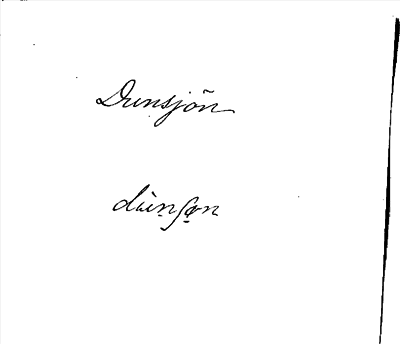 Dunsjön
du̇nʃøn